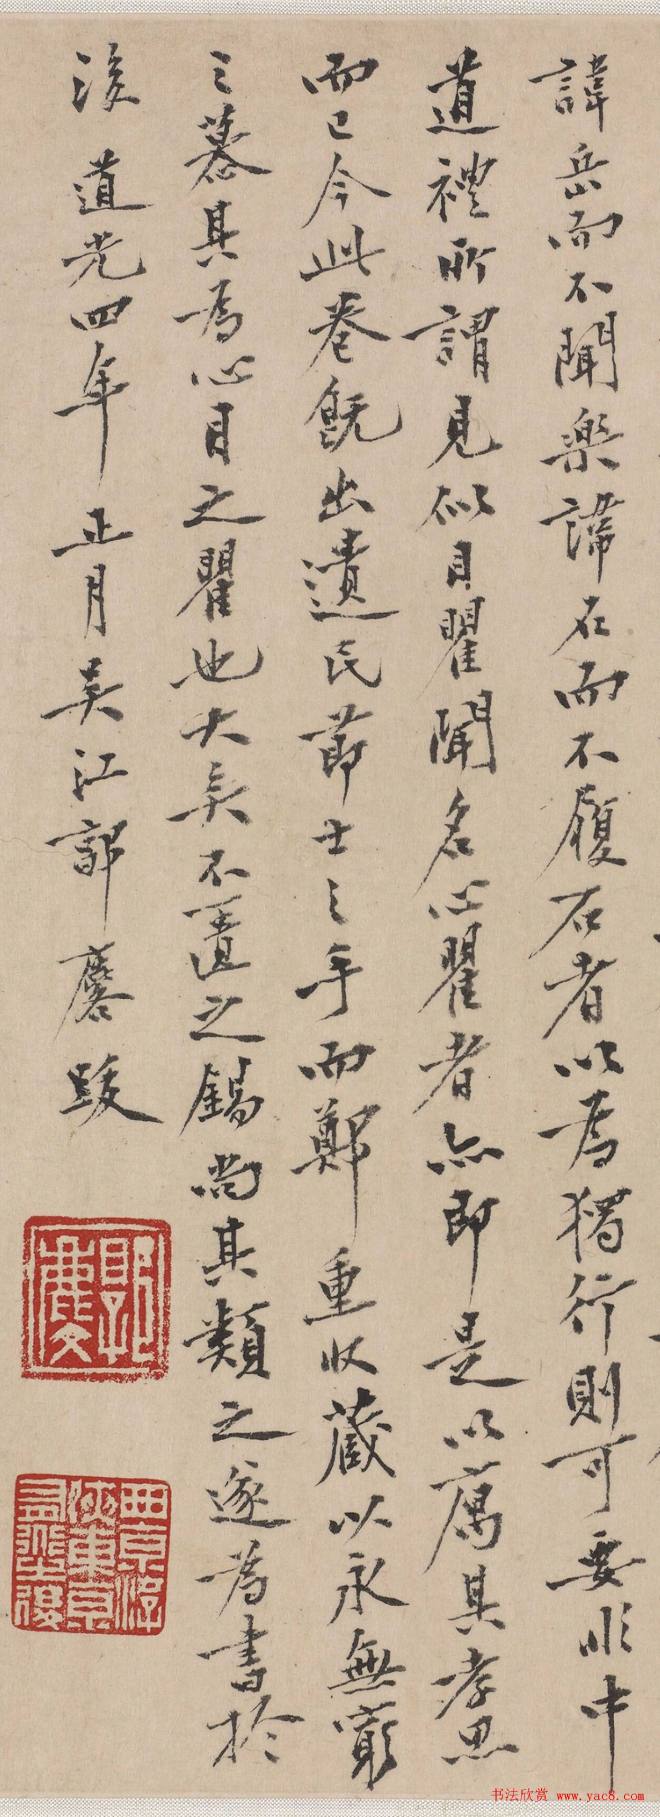 諱岳而不聞樂諱石而不履石者以為獨行則可要非中
道禮所謂見似目瞿聞名心瞿者亦即是以厲其孝思
而已今此卷既出遺民節士之手而鄭重收藏以永無窮
之慕其為心目之瞿也大矣不匱之錫尚其類之遂為書於
後 道光四年正月吳江郭麐跋
郭麐
书法欣赏 www.yac8.com